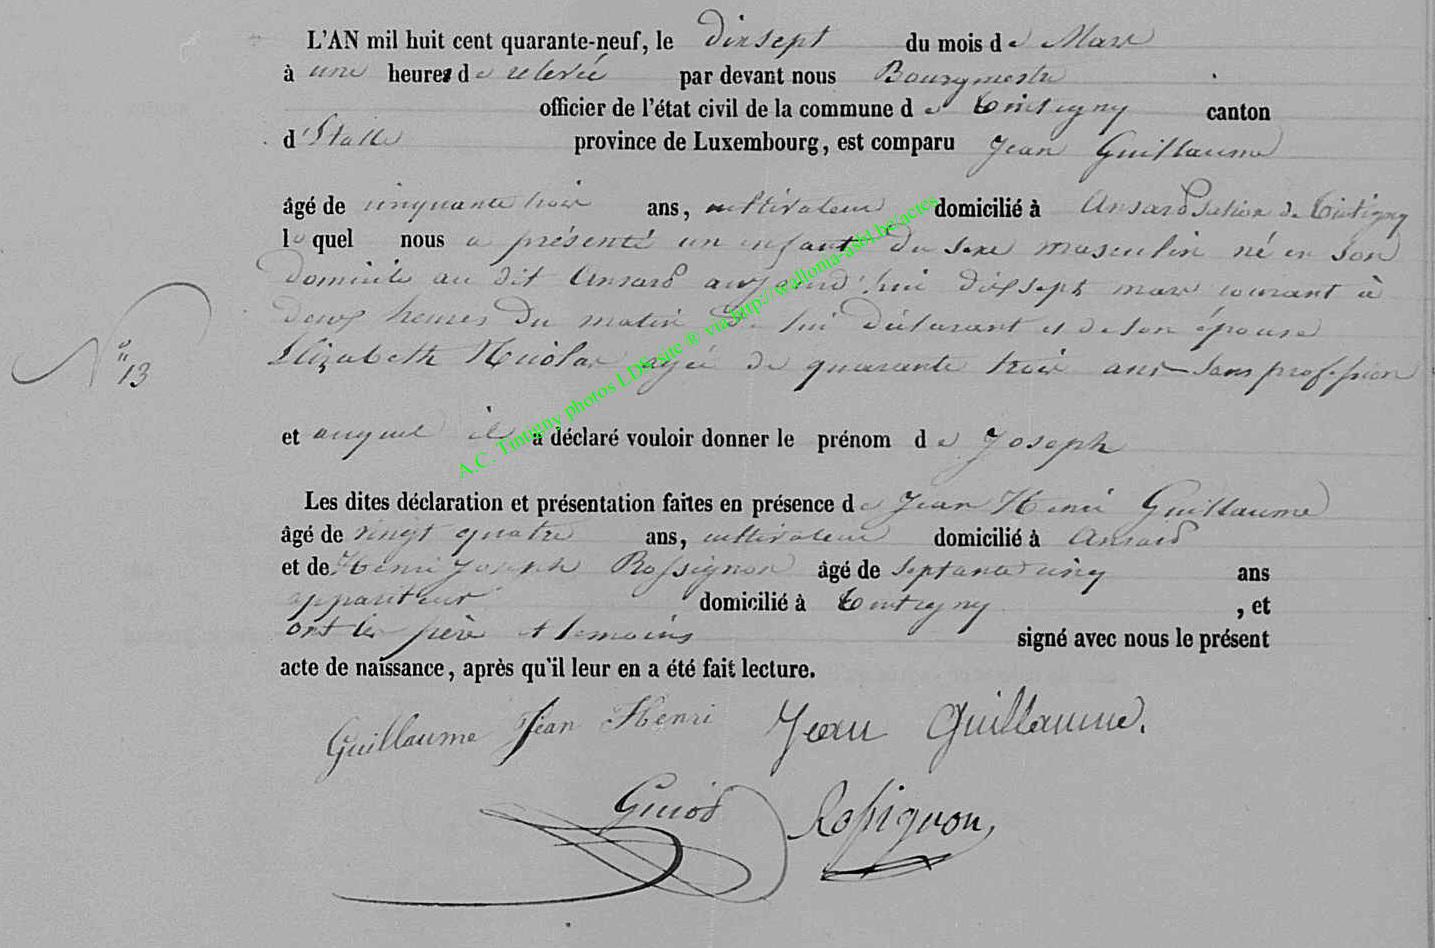 L'AN mil huit cent quarante-neuf, le dixsept du mois de Mars
à une heures de relevée par devant nous Bourgmestre
officier de l'état civil de la commune de Tintigny canton
d'Etalle province de Luxembourg, est comparu Jean Guillaume
âgé de cinquante trois ans, cultivateur domicilié à Ansard section de Tintigny
lequel nous a présenté un enfant du sexe masculin né en son
domicile au dit Ansard aujourd'hui dixsept mars courant à
deux heures du matin de lui déclarant et de son épouse
N° 13
Elizabeth Nicolas agée de quarante trois ans sans profession
et auquel il a déclaré vouloir donner le prénom de Joseph
Les dites déclaration et présentation faites en présence de Jean Henri Guillaume
âgé de vingt quatre ans, cultivateur domicilié à Ansard
et de Henri Joseph Rossignon âgé de septante cinq ans
appariteur domicilié à Tintigny , et
ont les père et temoins signé avec nous le présent
acte de naissance, après qu'il leur en a été fait lecture.
Guillaume Jean Henri Jean Guillaume.
Rossignon
A.C. Tintigny photos LDS site ® via http://wallonia-asbl.be/actes